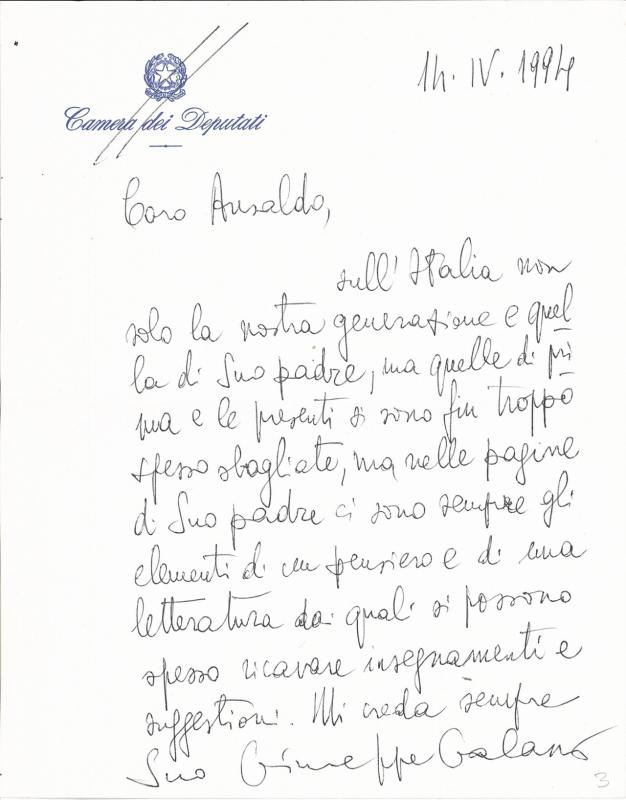 14.IV.1994
Camera dei Deputati
Caro Ansaldo,
sull'Italia non
solo la nostra generazione e quel
la di Suo padre, ma quelle di pri
ma e le presenti si sono fin troppo
spesso sbagliate, ma nelle pagine
di Suo padre ci sono sempre gli
elementi di un pensiero e di una
letteratura dai quali si possono
spesso ricavare insegnamenti e
suggestioni. Mi creda sempre
Suo Giuseppe Galasso
3